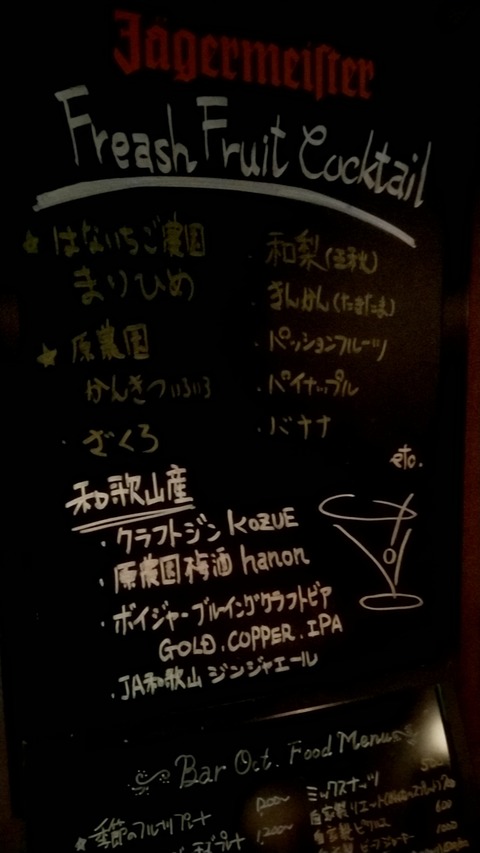 Jägermeister
Freash Fruit Cocktail
★はないちご農園
まりひめ
★原農園
かんきついろいろ
・ざくろ
・和梨(王秋)
・きんかん(たまたま)
・パッションフルーツ
・パイナップル
・バナナ
etc.
和歌山産
・クラフトジン KOZUE
・原農園梅酒 hanon
・ボイジャーブルーイングクラフトビア
GOLD.COPPER.IPA
・JA和歌山 ジンジャエール
Bar Oct. Food Menu
★季節のフルーツプレート
1,200~
ミックスナッツ
500
自家製リエット
自家製ピクルス
600
自家製
1000